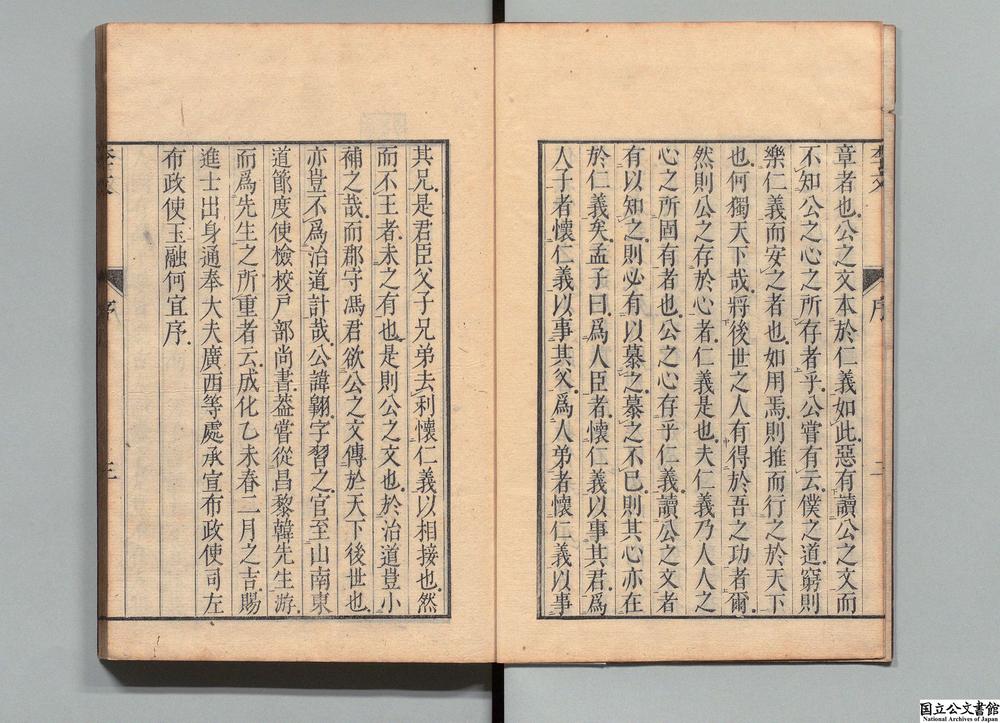 章者也公之文本於仁義如此惡有讀公之文而
不知公之心之所存者乎公嘗有云僕之道窮則
樂仁義而安之者也如用焉則推而行之於天下
也何獨天下哉將後世之人有得於吾之功者爾
然則公之存於心者仁義是也夫仁義乃人人之
心之所固有者也公之心存乎仁義讀公之文者
有以知之則必有以慕之慕之不已則其心亦在
於仁義矣孟子曰爲人臣者懷仁義以事其君爲
人子者懷仁義以事其父爲人弟者懷仁義以事
序
二
其兄是君臣父子兄弟去利懷仁義以相接也然
而不王者未之有也是則公之文也於治道豈小
補之哉而郡守馮君欲公之文傳於天下後世也
亦豈不爲治道計哉公諱翺字習之官至山南東
道節度使檢校戸部尚書葢嘗從昌黎韓先生游
而爲先生之所重者云成化乙未春二月之吉賜
進士出身通奉大夫廣西等處承宣布政使司左
布政使玉融何宜序
序
三
国立公文書館
National Archives of Japan